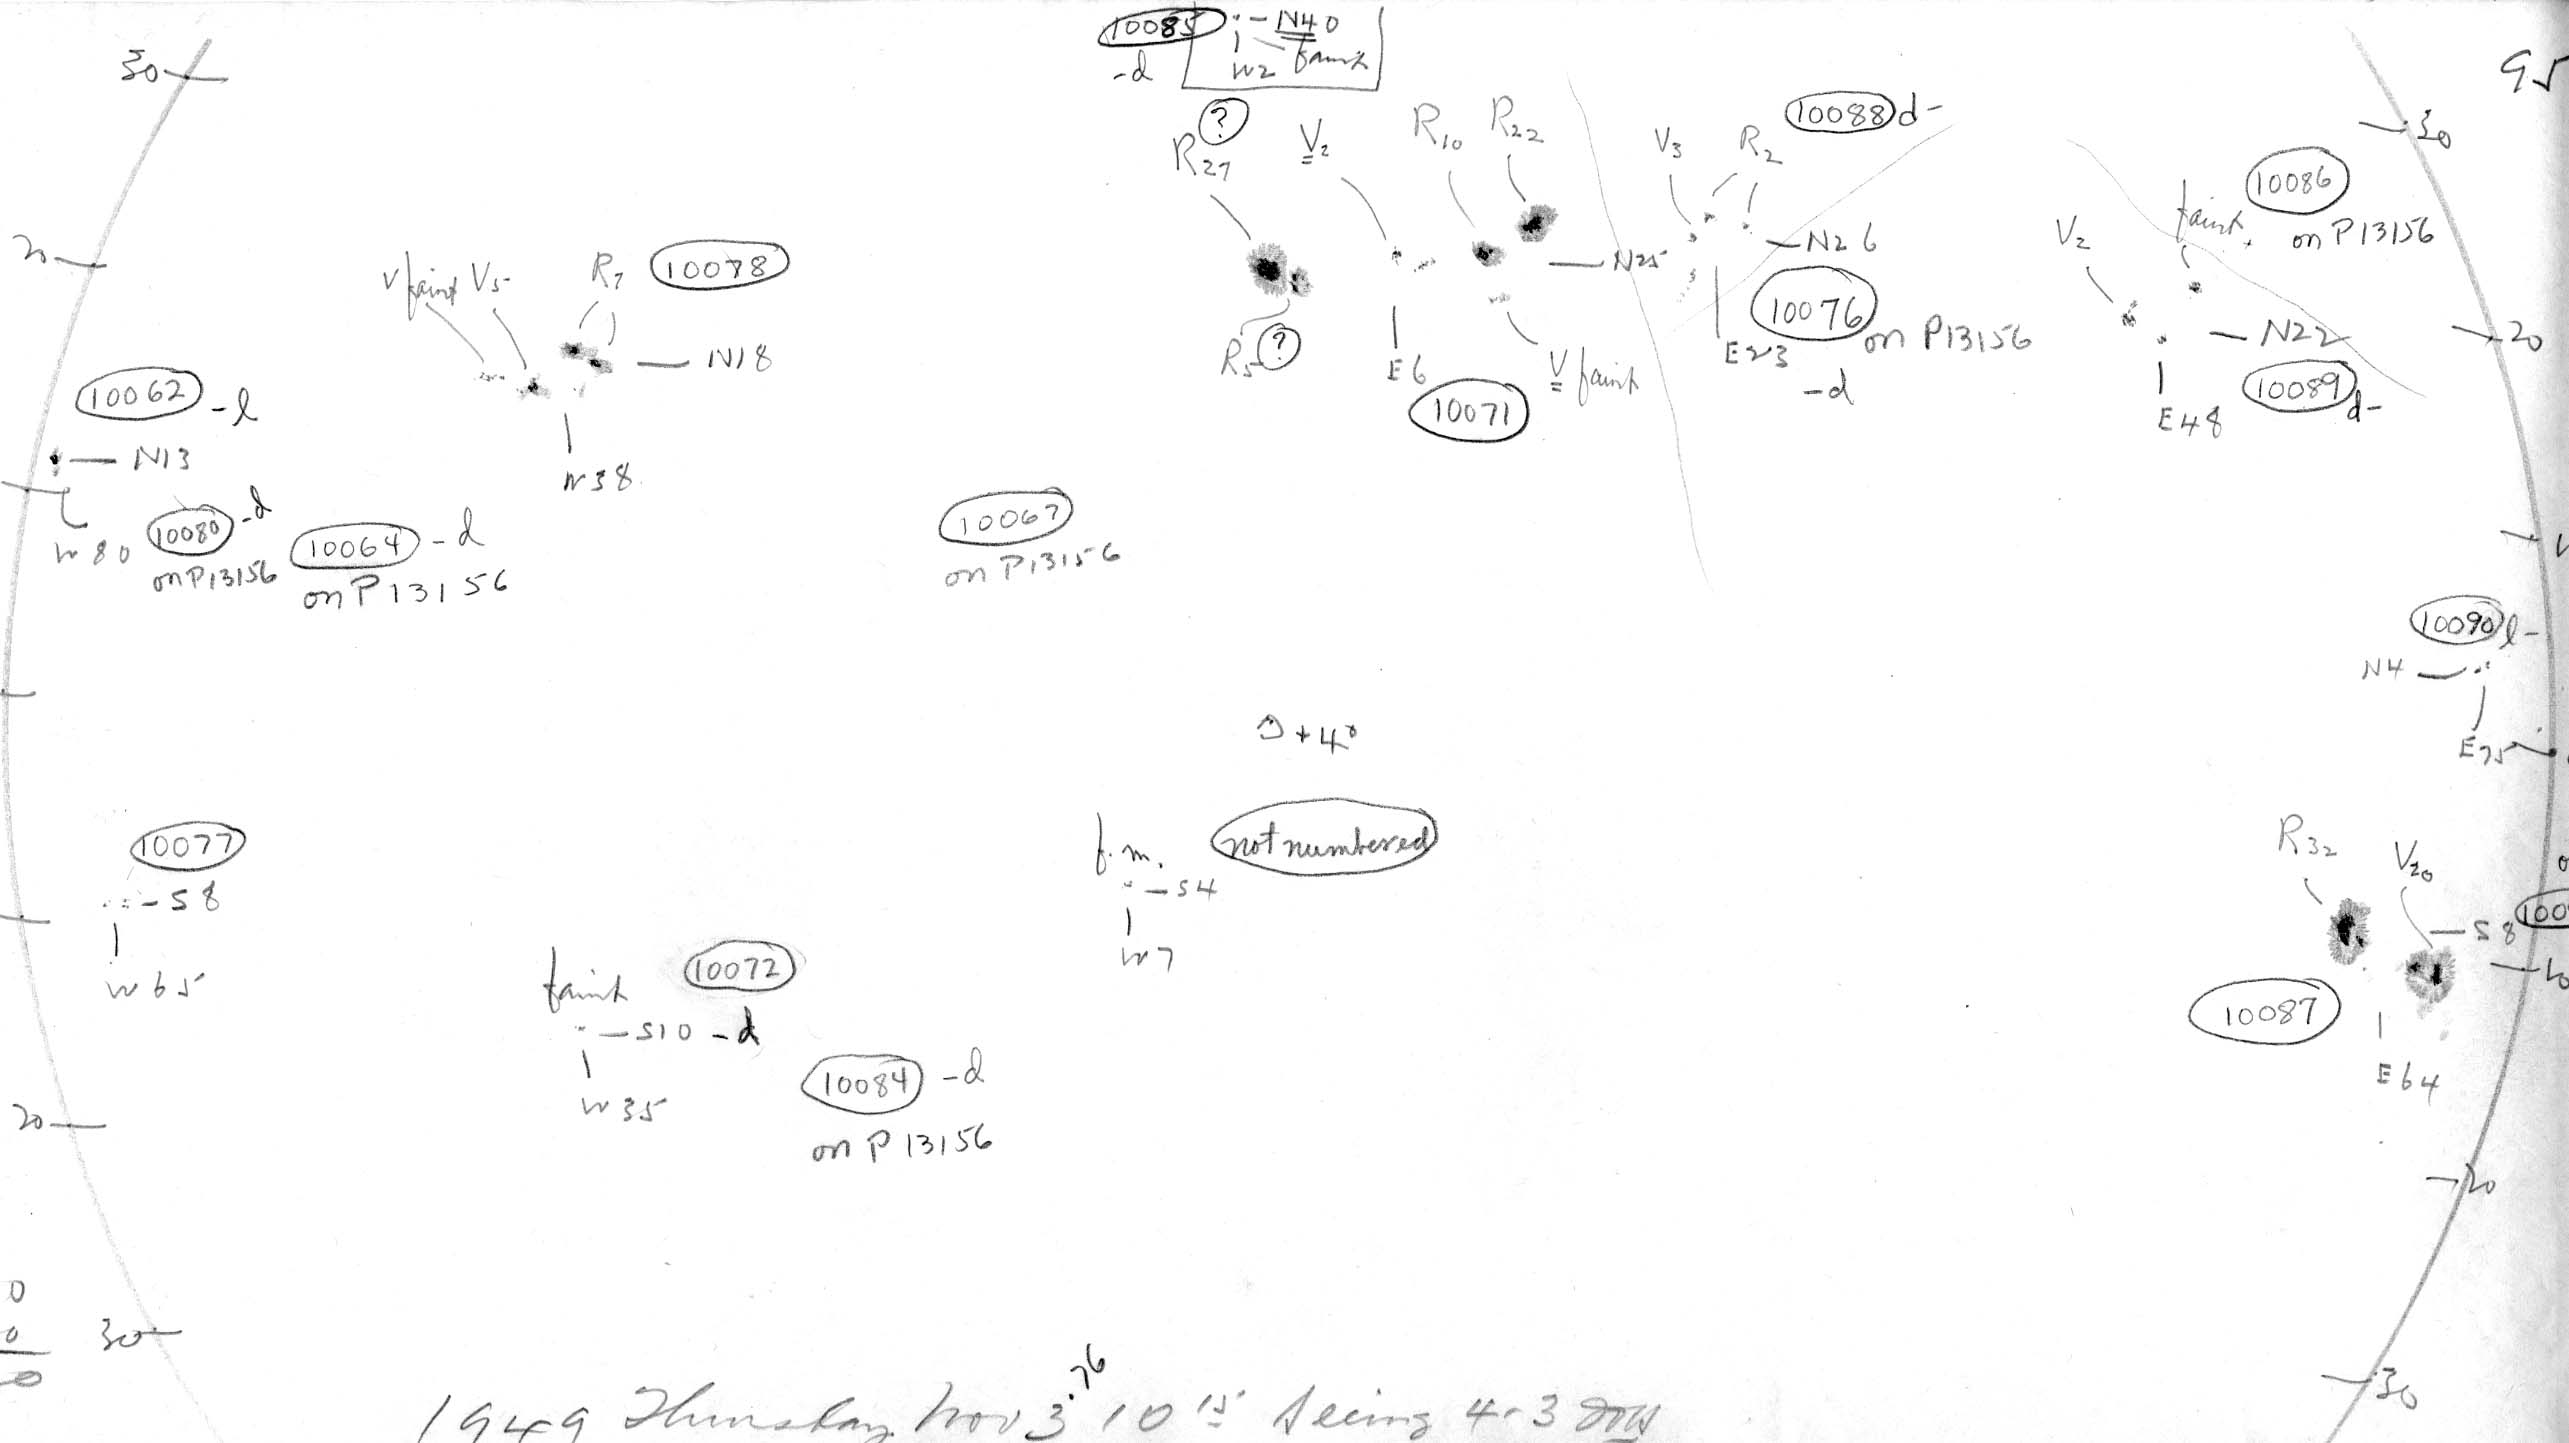 10085 N40
-d W2 faint
95
30
30
?
R27 V2 R10 R22 V3 R2 10088 d-
10086
faint on P13156
20
V faint V5 R7 10078
N25 N26
V2
10076 on P13156
N22 20
R5 ? E6 V faint E23
-d
10071
10089 d-
E48
N18
10062 -l
N13
W38
W80 10080 -d 10064 -d
on P13156 on P13156
10067
on P13156
10090 l-
N4
E75
+4°
10077
f.m. not numbered
S4
W7
R32 V20
S8
S8 10
W65
10072
faint
S10 -d
W35
10087
E64
10084 -d
on P13156
20
20
0
0
0
30
30
1949 Thursday Nov 3.76 10 15 Seeing 4-3